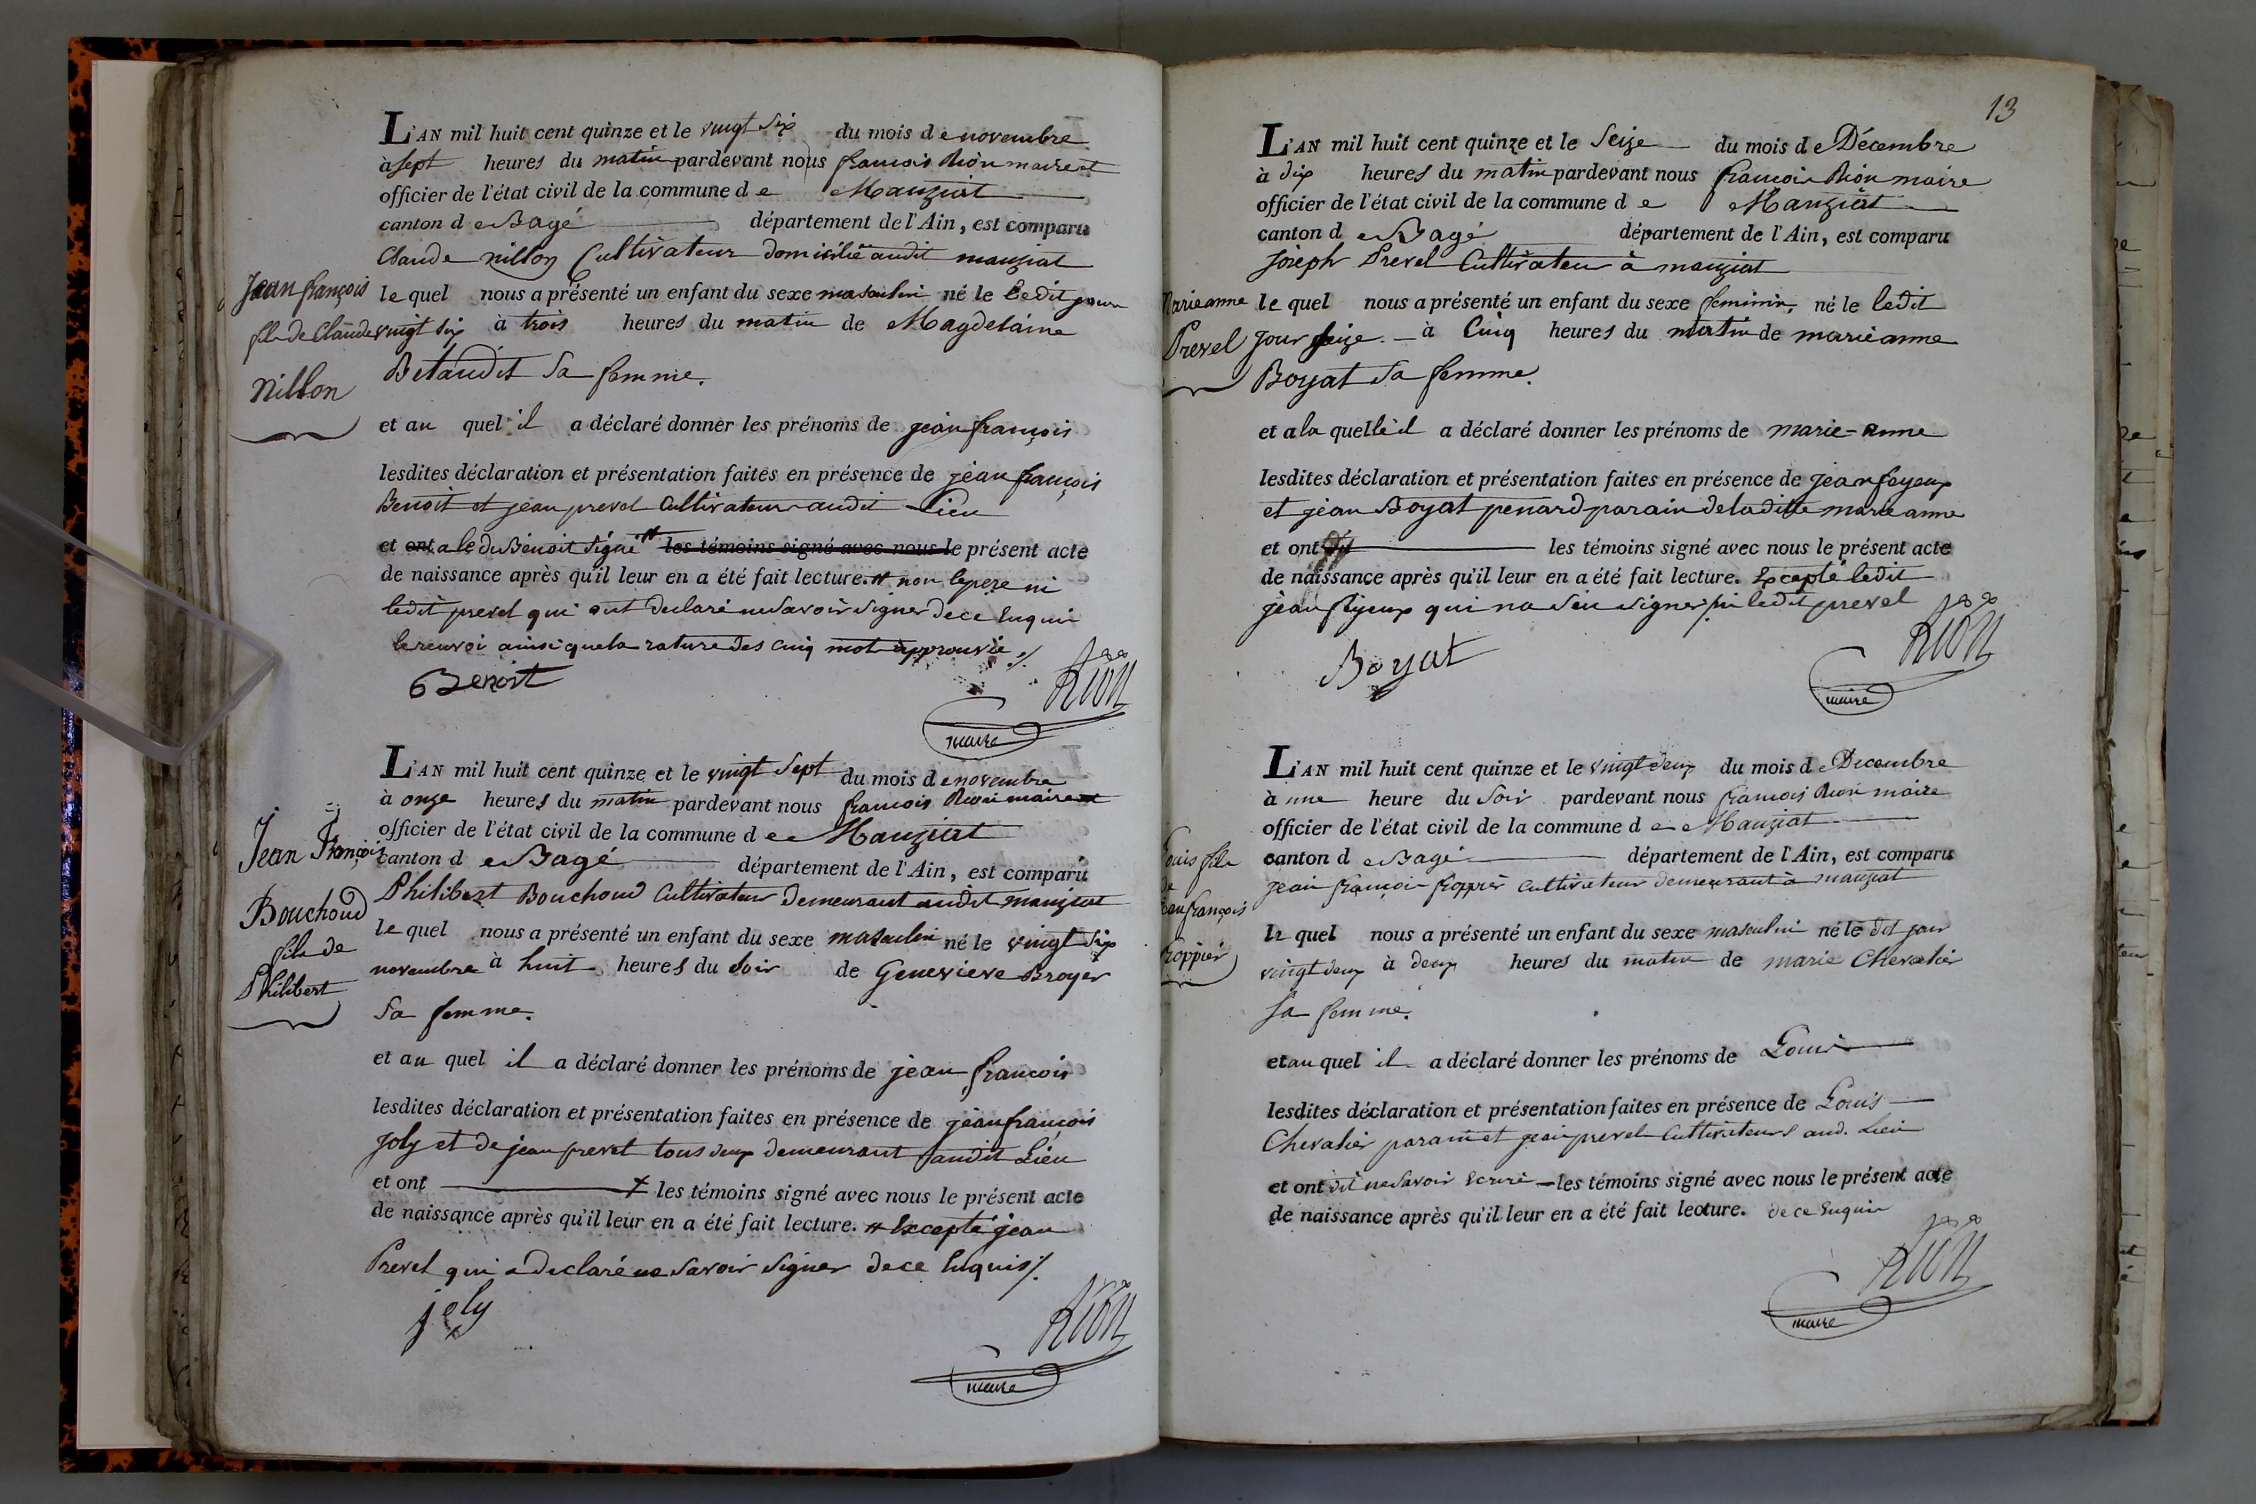 L'AN mil huit cent quinze et le vingt six du mois de novembre
à sept heures du matin pardevant nous françois Rion maire et
officier de l'état civil de la commune de Manziat
canton de Bagé département de l'Ain, est comparu
Claude nillon Cultivateur domicilié audit manziat
Jean françois
fils de Claude
Nillon
le quel nous a présenté un enfant du sexe masculin né le ledit jour
vingt six à trois heures du matin de Magdelaine
Betaudit Sa femme.
et au quel il a déclaré donner les prénoms de jean françois
lesdites déclaration et présentation faites en présence de jean françois
Benoit et jean prevel Cultivateurs audit Lieu
et ont a le du Benoit Signé # les témoins signé avec nous le présent acte
de naissance après qu'il leur en a été fait lecture. # non le pere ni
ledit prevel qui ont declaré ne Savoir Signer de ce Enquis
le renvoi ainsi que la rature des cinq mots approuvée ./.
Benoit
Rion
maire
L'AN mil huit cent quinze et le vingt Sept du mois de novembre
à onze heures du matin pardevant nous francois Rion maire et
officier de l'état civil de la commune de Manziat
canton de Bagé département de l'Ain, est comparu
Philibert Bouchoud Cultivateur demeurant audit manziat
Jean François
Bouchoud
fils de
Philibert
le quel nous a présenté un enfant du sexe masculin né le vingt Six
novembre à huit heures du Soir de Genevieve Broyer
Sa femme.
et au quel il a déclaré donner les prénoms de jean francois
lesdites déclaration et présentation faites en présence de jean françois
Joly et de jean prevel tous deux demeurant audit Lieu
et ont les témoins signé avec nous le présent acte
de naissance après qu'il leur en a été fait lecture. # Excepté jean
Prevel qui a declaré ne Savoir Signer de ce Enquis ./.
joly
Rion
maire
13
L'AN mil huit cent quinze et le Seize du mois de Décembre
à dix heures du matin pardevant nous francois Rion maire
officier de l'état civil de la commune de Manziat
canton de Bagé département de l'Ain, est comparu
Joseph Prevel Cultivateur à manziat
Marie anne
Prevel
le quel nous a présenté un enfant du sexe feminin, né le ledit
Jour Seize à Cinq heures du matin de marie anne
Boyat Sa femme.
et a la quelle il a déclaré donner les prénoms de marie-anne
lesdites déclaration et présentation faites en présence de jean feyeux
et jean Boyat penard parain de la ditte marie anne
et ont les témoins signé avec nous le présent acte
de naissance après qu'il leur en a été fait lecture. Excepté ledit
jean feyeux qui na Seu Signer ni ledit prevel
Boyat
Rion
maire
L'AN mil huit cent quinze et le vingt deux du mois de Decembre
à une heure du Soir pardevant nous francois Rion maire
officier de l'état civil de la commune de Manziat
canton de Bagé département de l'Ain, est comparu
jean françois froppier cultivateur demeurant à manziat
Louis fils
de
jean françois
froppier
le quel nous a présenté un enfant du sexe masculin né le dit jour
vingt deux à deux heures du matin de marie Chevalier
Sa femme.
et au quel il a déclaré donner les prénoms de Louis
lesdites déclaration et présentation faites en présence de Louis
Chevalier parain et jean prevel Cultivateurs aud. Lieu
et ont dit ne Savoir Ecrire les témoins signé avec nous le présent acte
de naissance après qu'il leur en a été fait lecture. de ce Enquis
Rion
maire